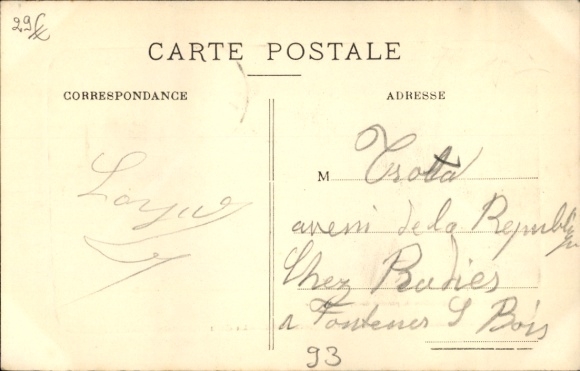 29
CARTE POSTALE
CORRESPONDANCE
ADRESSE
M Trota
aveni de la Republi
Chez Rodies
a Fontener S Bois
93